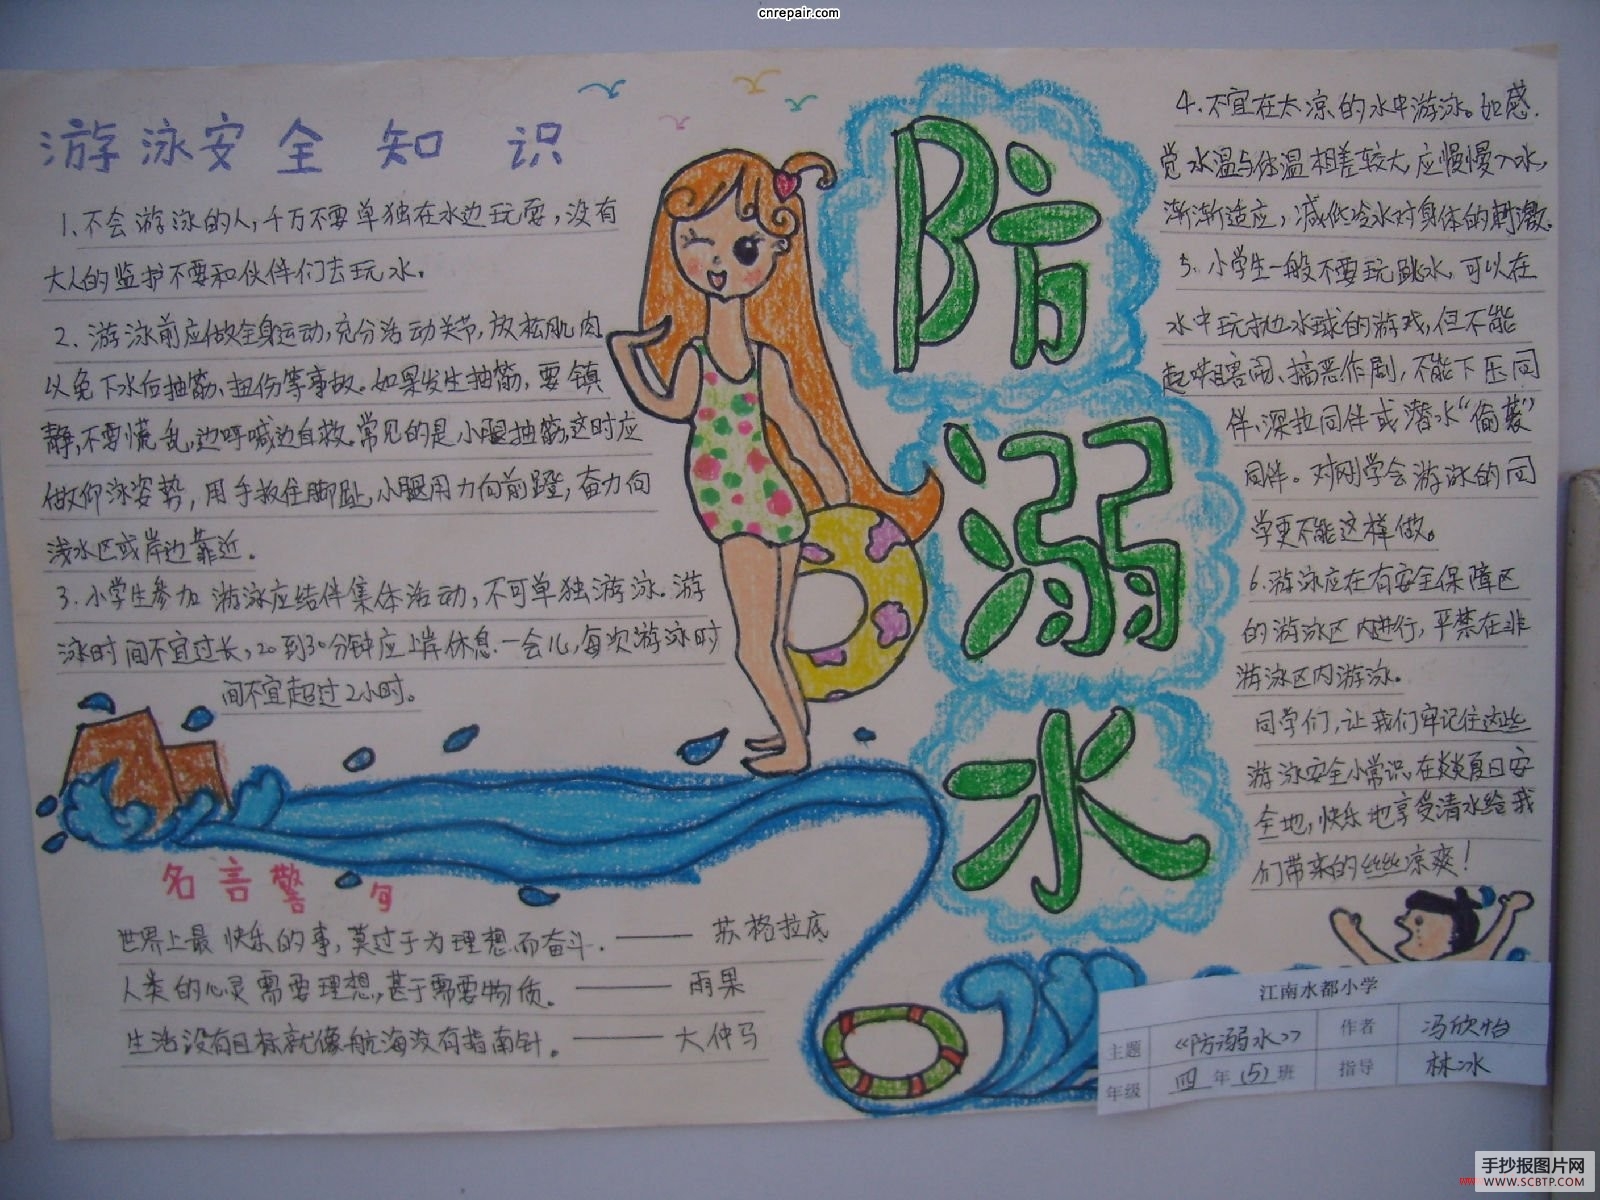 cnrepair.com
游泳安全知识
1、不会游泳的人,千万不要单独在水边玩耍,没有
大人的监护不要和伙伴们去玩水。
2、游泳前应做全身运动,充分活动关节,放松肌肉
以免下水后抽筋、扭伤等事故。如果发生抽筋,要镇
静,不要慌乱,边呼喊边自救。常见的是小腿抽筋,这时应
做仰泳姿势,用手扳住脚趾,小腿用力向前蹬,奋力向
浅水区或岸边靠近。
3、小学生参加游泳应结伴集体活动,不可单独游泳。游
泳时间不宜过长,20到30分钟应上岸休息一会儿,每次游泳时
间不宜超过2小时。
名言警句
世界上最快乐的事,莫过于为理想而奋斗. —— 苏格拉底
人类的心灵需要理想,甚于需要物质。 —— 雨果
生活没有目标就像航海没有指南针。 —— 大仲马
防
溺
水
4、不宜在太凉的水中游泳。如感
觉水温与体温相差较大,应慢慢入水,
渐渐适应,减低冷水对身体的刺激。
5、小学生一般不要玩跳水,可以在
水中玩抛水球的游戏,但不能
起哄瞎闹、搞恶作剧,不能下压同
伴、深拉同伴或潜水“偷袭”
同伴。对刚学会游泳的同
学更不能这样做。
6、游泳应在有安全保障区
的游泳区内进行,严禁在非
游泳区内游泳。
同学们,让我们牢记住这些
游泳安全小常识,在炎炎夏日安
全地,快乐地享受清水给我
们带来的丝丝凉爽!
江南水都小学
主题 《防溺水》 作者 冯欣怡
年级 四年(5)班 指导 林冰
手抄报图片网
WWW.SCBTP.COM